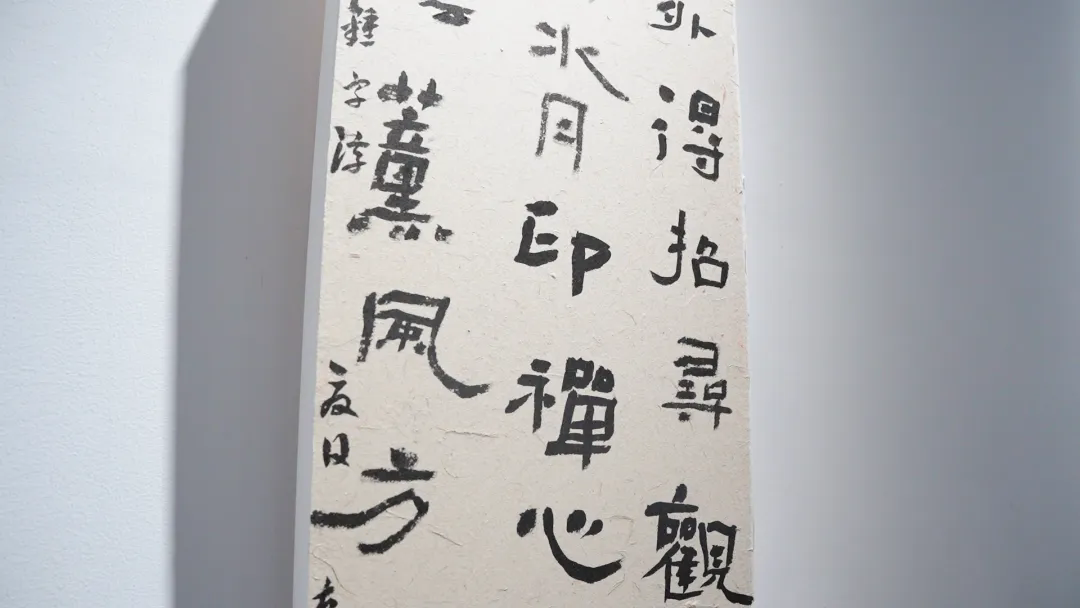 外得招尋觀
水月印禪心
薰風方
字 夏日